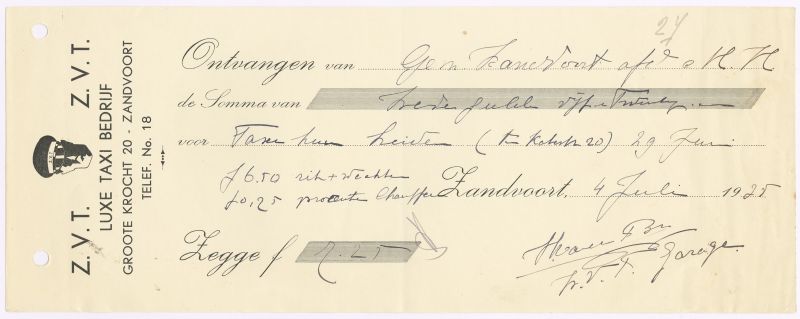 Z. V. T. Z. V. T.
LUXE TAXI BEDRIJF
GROOTE KROCHT 20 - ZANDVOORT
TELEF. No. 18
24
Ontvangen van Gem Zandvoort afd H. H
de Somma van gulden vijf en Twintig
voor Taxi Leiden ( 20) 29 Juni
f 6.50 rit + wachten
f 0,25 procenten Chauffeur Zandvoort, 4 Juli 1935
Zegge f 7.25
Garage.
Z. V. T.